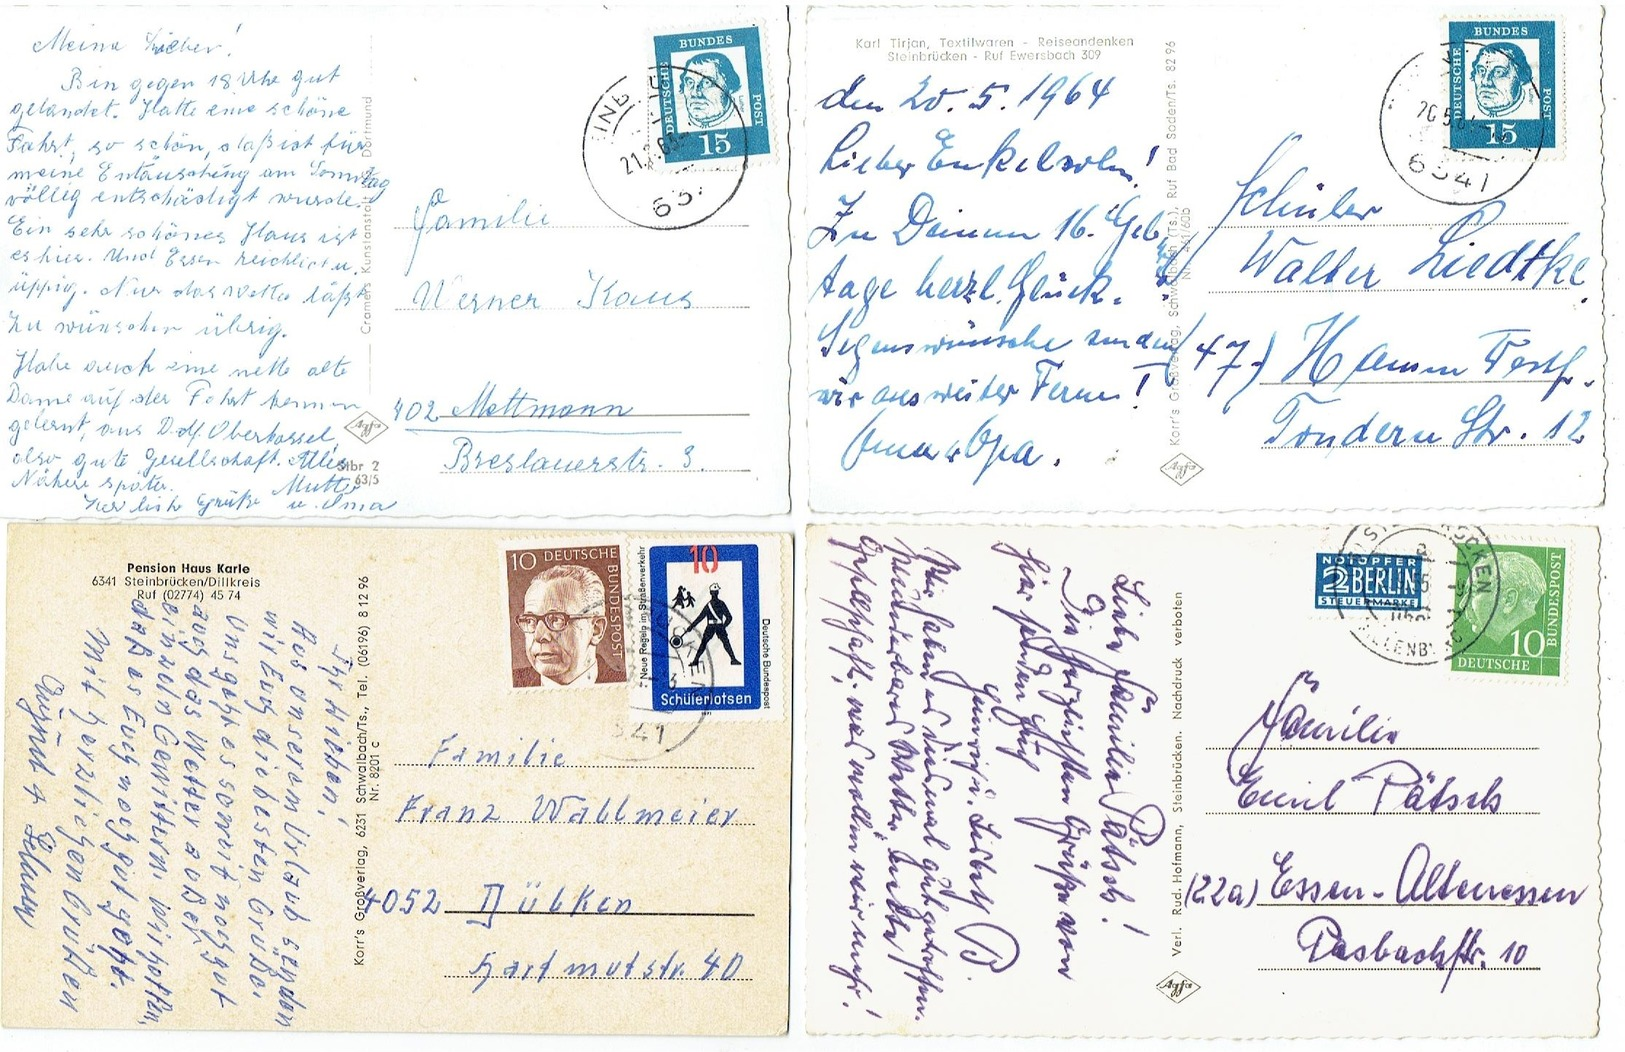 Meine Lieben!
Bin gegen 18 Uhr gut
gelandet. Hatte eine schöne
Fahrt, so schön, daß ist für
meine Entäuschung am Sonntag
völlig entschädigt wurde.
Ein sehr schönes Haus ist
es hier. Und Essen reichlich u.
üppig. Nur das Wetter läßt
zu wünschen übrig.
Habe auch eine nette alte
Dame auf der Fahrt kennen
gelernt, aus Ddf. Oberkassel,
also gute Gesellschaft. Alles
Nähere später. Mutter
Herzliche Grüße u. Oma
Cramers Kunstanstalt Dortmund
Agfa
Stbr 2
63/5
DEUTSCHE BUNDES POST
15
21. 63
Familie
Werner Kaus
402 Mettmann
Breslauerstr. 3.
Karl Tirjan, Textilwaren - Reiseandenken
Steinbrücken - Ruf Ewersbach 309
den 20. 5. 1964
Lieber Enkelsohn!
Zu Deinem 16. Geb.
tage herzl. Glück- u.
Segenswünsche senden
wir aus weiter Ferne!
Oma u. Opa.
Korr's Großverlag, Schwalbach (Ts.), Ruf Bad Soden/Ts. 82 96
Agfa
DEUTSCHE BUNDES POST
15
6341
Schüler
Walter Liedtke
(47) Hamm Westf.
Tondern Str. 12
Pension Haus Karle
6341 Steinbrücken/Dillkreis
Ruf (02774) 45 74
Ihr Lieben!
Aus unserem Urlaub senden
wir Euch die besten Grüße.
Uns geht es soweit noch gut
auch das Wetter außer
einzeln Gewittern wir hoffen,
daß es Euch noch gut geht.
Mit herzlichen Grüßen
Korr's Großverlag, 6231 Schwalbach/Ts., Tel. (06196) 8 12 96
Nr. 8201 c
10 DEUTSCHE BUNDESPOST
10
Neue Regeln im Straßenverkehr
Deutsche Bundespost
Schülerlotsen
Familie
Franz Wallmeier
4052 Dülken
Hartmutstr. 40
Liebe Familie Pätsch!
Die herzlichsten Grüße von
hier senden Euch
Wir haben es diesmal gut getroffen.
Wunderbares Wetter, nette
Gesellschaft, was wollen wir mehr!
Verl. Rud. Hofmann, Steinbrücken. Nachdruck verboten
Agfa
NOTOPFER
2 BERLIN
STEUERMARKE
10
DEUTSCHE BUNDESPOST
Familie
Emil Pätsch
(22a) Essen-Altenessen
Rasbachstr. 10